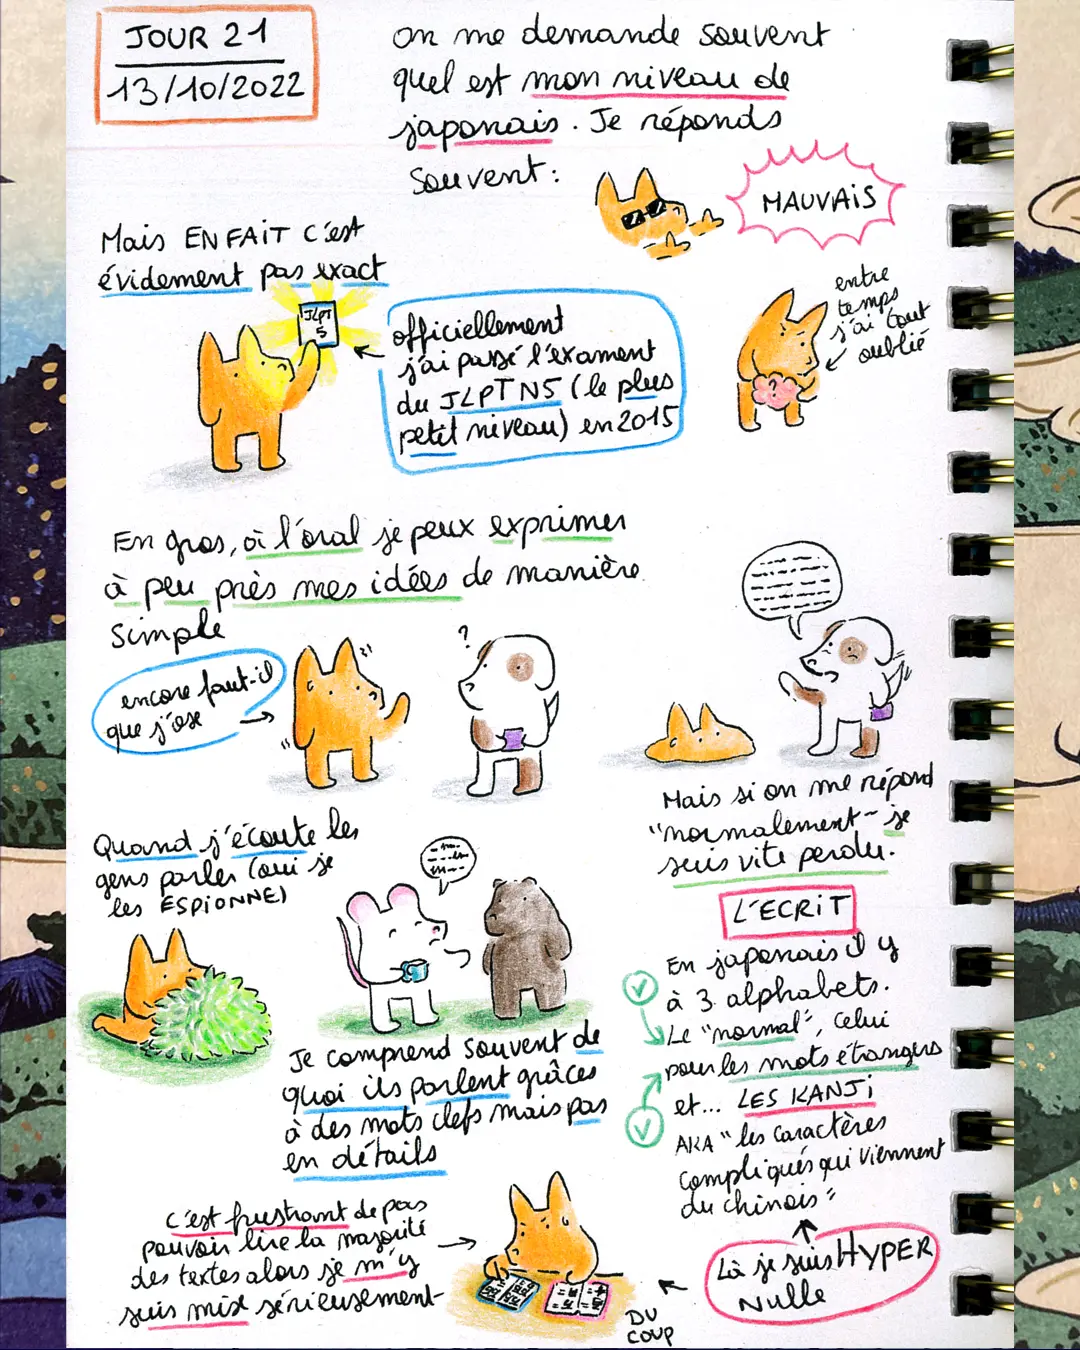 JOUR 21
13/10/2022
on me demande souvent
quel est mon niveau de
japonais. Je réponds
souvent:
MAUVAIS
Mais EN FAIT c'est
évidement pas exact
JLPT
5
officiellement
j'ai passé l'exament
du JLPT N5 (le plus
petit niveau) en 2015
entre
temps
j'ai tout
oublié
?
En gros, à l'oral je peux exprimer
à peu près mes idées de manière
simple
encore faut-il
que j'ose
?
Mais si on me répond
"normalement" je
suis vite perdu.
Quand j'écoute les
gens parler (oui je
les ESPIONNE)
Je comprend souvent de
quoi ils parlent grâces
à des mots clefs mais pas
en détails
L'ECRIT
En japonais il y
à 3 alphabets.
Le "normal", celui
pour les mots étrangers
et... LES KANJI
AKA "les caractères
compliqués qui viennent
du chinois"
Là je suis HYPER
NULLE
DU
COUP
c'est frustrant de pas
pouvoir lire la majorité
des textes alors je m'y
suis mise sérieusement